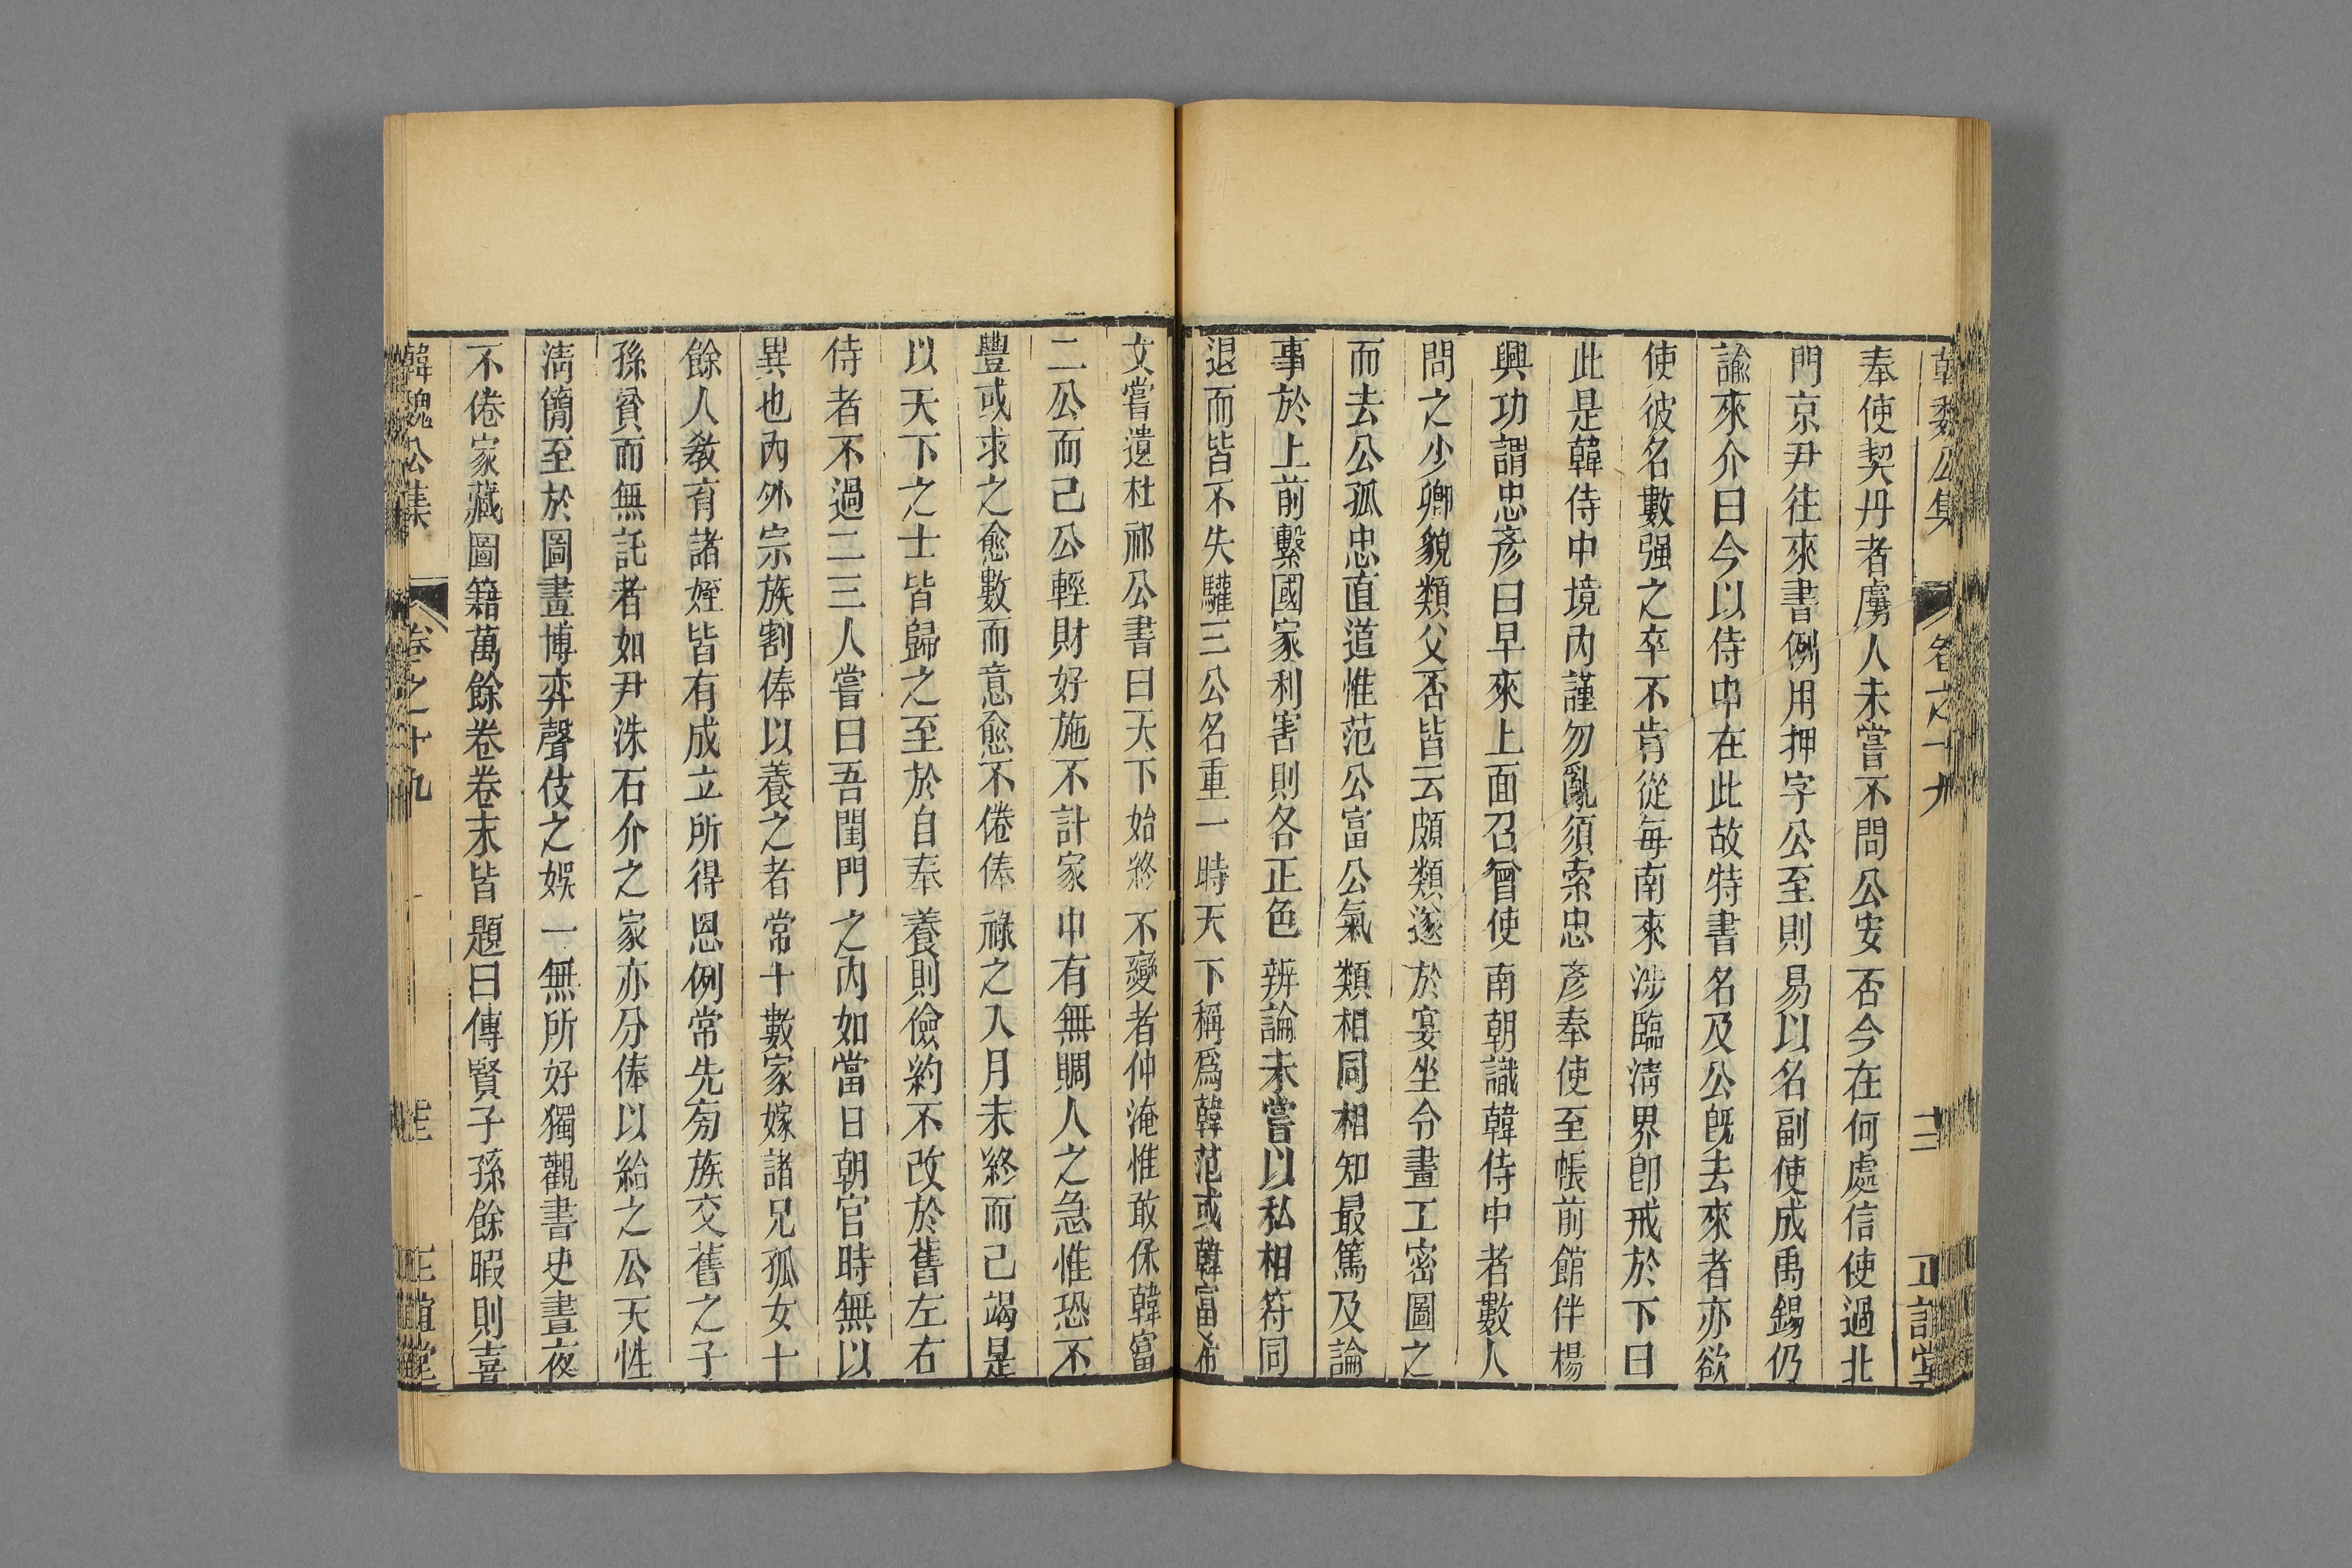 韓魏公集 卷之十九 十二 正誼堂
奉使契丹者虜人未嘗不問公安否今在何處信使過北
門京尹往來書例用押字公至則易以名副使成禹錫仍
諭來介曰今以侍中在此故特書名及公旣去來者亦欲
使彼名數强之卒不肯從每南來涉臨淸界卽戒於下曰
此是韓侍中境內謹勿亂須索忠彥奉使至帳前館伴楊
興功謂忠彥曰早來上面召曾使南朝識韓侍中者數人
問之少卿貌類父否皆云頗類遂於宴坐令畫工密圖之
而去公孤忠直道惟范公富公氣類相同相知最篤及論
事於上前繫國家利害則各正色辨論未嘗以私相符同
退而皆不失驩三公名重一時天下稱爲韓范或韓富希
文嘗遺杜祁公書曰天下始終不變者仲淹惟敢保韓富
二公而已公輕財好施不計家中有無賙人之急惟恐不
豐或求之愈數而意愈不倦俸祿之入月未終而已竭是
以天下之士皆歸之至於自奉養則儉約不改於舊左右
侍者不過二三人嘗曰吾閨門之內如當日朝官時無以
異也內外宗族割俸以養之者常十數家嫁諸兄孤女十
餘人敎育諸姪皆有成立所得恩例常先旁族交舊之子
孫貧而無託者如尹洙石介之家亦分俸以給之公天性
淸簡至於圖畫博弈聲伎之娛一無所好獨觀書史晝夜
不倦家藏圖籍萬餘卷卷末皆題曰傳賢子孫餘暇則喜
韓魏公集 卷之十九 正誼堂